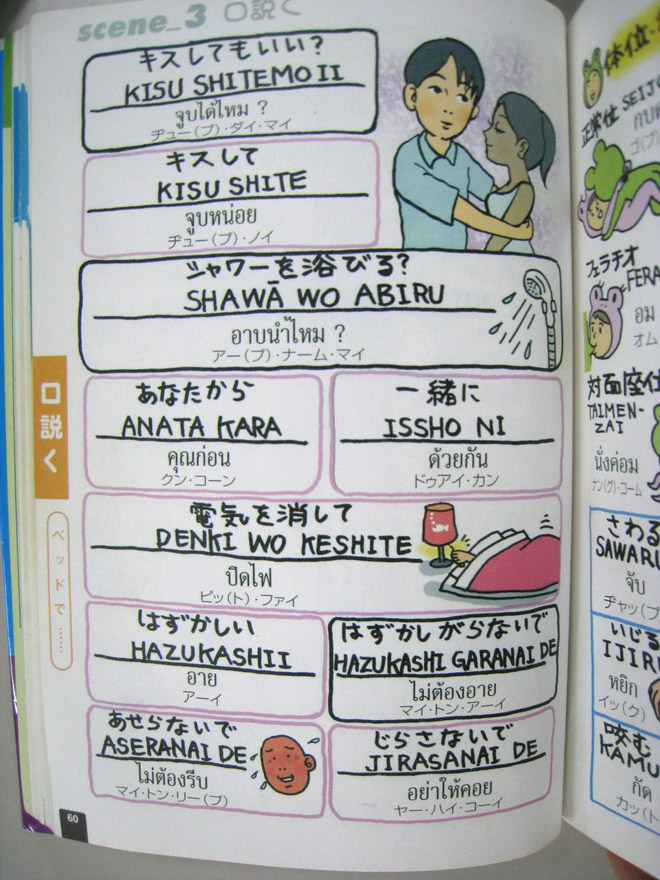 scene_3 口説く
キスしてもいい?
KISU SHITEMO II
จูบได้ไหม ?
ヂュー(プ)・ダイ・マイ
キスして
KISU SHITE
จูบหน่อย
ヂュー(プ)・ノイ
シャワーを浴びる?
SHAWĀ WO ABIRU
อาบน้ำไหม ?
アー(プ)・ナーム・マイ
あなたから
ANATA KARA
คุณก่อน
クン・コーン
一緒に
ISSHO NI
ด้วยกัน
ドゥアイ・カン
電気を消して
DENKI WO KESHITE
ปิดไฟ
ピッ(ト)・ファイ
はずかしい
HAZUKASHII
อาย
アーイ
はずかしがらないで
HAZUKASHI GARANAI DE
ไม่ต้องอาย
マイ・トン・アーイ
あせらないで
ASERANAI DE
ไม่ต้องรีบ
マイ・トン・リー(プ)
じらさないで
JIRASANAI DE
อย่าให้คอย
ヤー・ハイ・コーイ
口説く
ベッドで……
60
体位
正常位 SEIJO
フェラチオ
FERA
อม
オム
対面座位
TAIMEN-
ZAI
นั่งค่อม
ナン(グ)・コーム
さわる
SAWARU
จับ
ヂャッ(プ
いじる
IJIR
หยิก
イッ(ク)
咬む
KAMU
กัด
カッ(ト